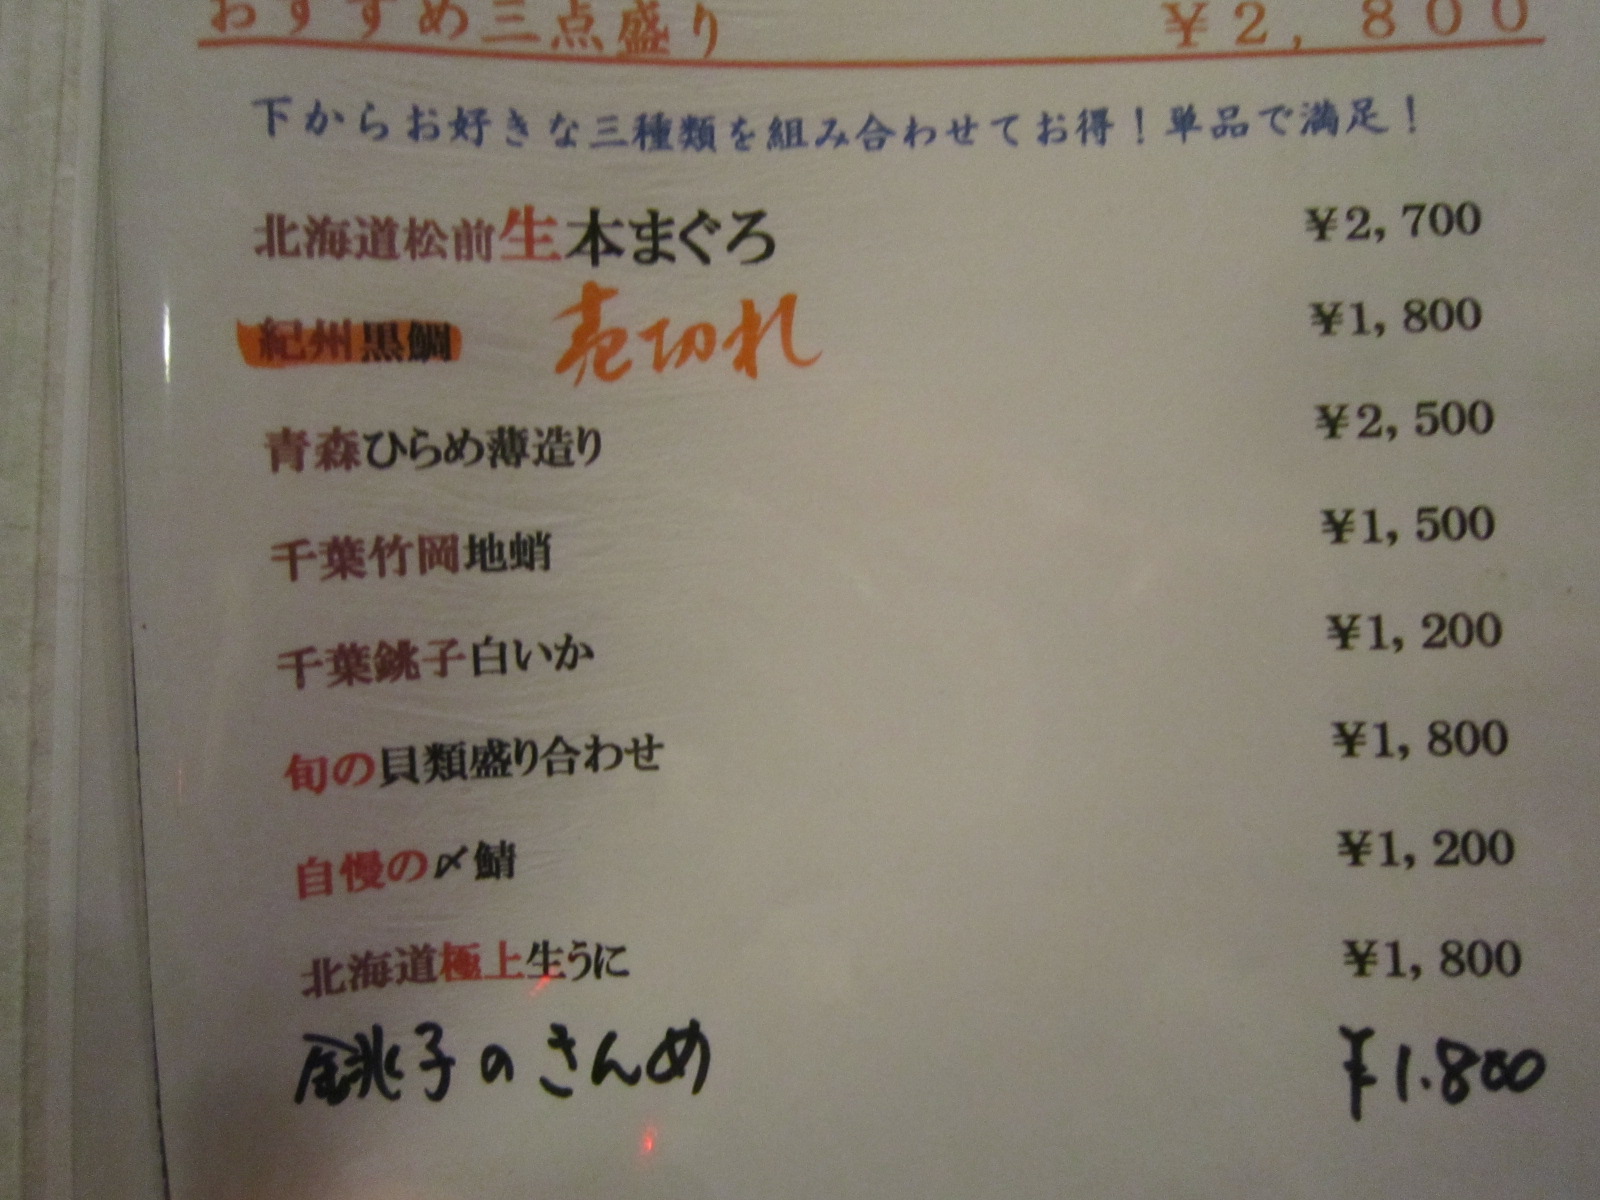 おすすめ三点盛り ¥2,800
下からお好きな三種類を組み合わせてお得！単品で満足！
北海道松前生本まぐろ ¥2,700
紀州黒鯛 売切れ ¥1,800
青森ひらめ薄造り ¥2,500
千葉竹岡地蛸 ¥1,500
千葉銚子白いか ¥1,200
旬の貝類盛り合わせ ¥1,800
自慢の〆鯖 ¥1,200
北海道極上生うに ¥1,800
銚子のきんめ ¥1.800